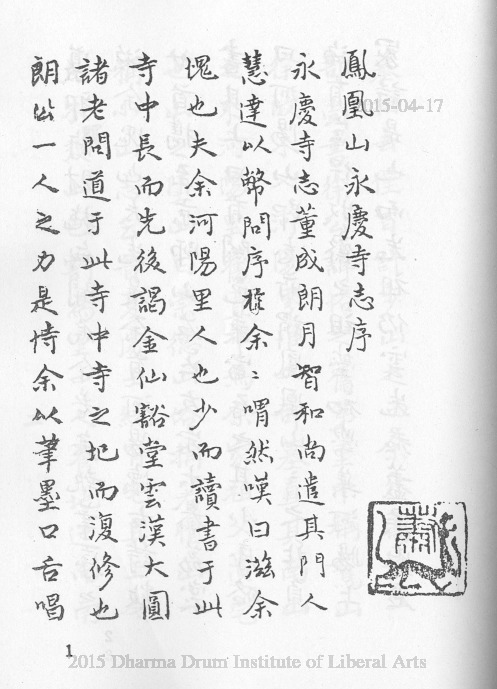 鳳凰山永慶寺志序
永慶寺志董成朗月智和尚遣其門人
慧達以幣問序於余〻喟然嘆曰滋余
愧也夫余河陽里人也少而讀書于此
寺中長而先後謁金仙豁堂雲漢大圓
諸老問道于此寺中寺之圯而復修也
朗公一人之力是恃余以筆墨口舌唱
2015-04-17
1
2015 Dharma Drum Institute of Liberal Arts